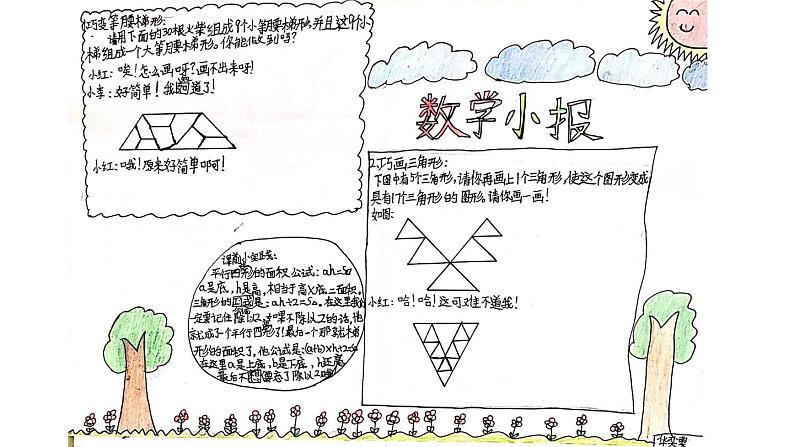 1.巧变等腰梯形:
请用下面的30根火柴组成9个小等腰梯形,并且这9个小
梯组成一个大等腰梯形。你能做到吗?
小红:唉!怎么画呀?画不出来呀!
小李:好简单!我知道了!
小红:哦!原来好简单啊可!
数学小报
2.巧画三角形:
下图中有5个三角形,请你再画上1个三角形,使这个图形变成
具有17个三角形的图形。请你画一画!
如图:
小红:哈!哈!这可难不道我!
课前小实践:
平行四形的面积公式:ah=S
a是底,h是高,相当于高乘底=面积。
三角形的公式是:ah÷2=S。在这里我们
一定要记住除以2,如果不除以2的话,他
就成了个平行四形了!最后一个那就是梯
形的面积了,他公式是:(a+b)×h÷2=S
在这里a是上底,b是下底,h还是高
最后不要忘了除以2哦!